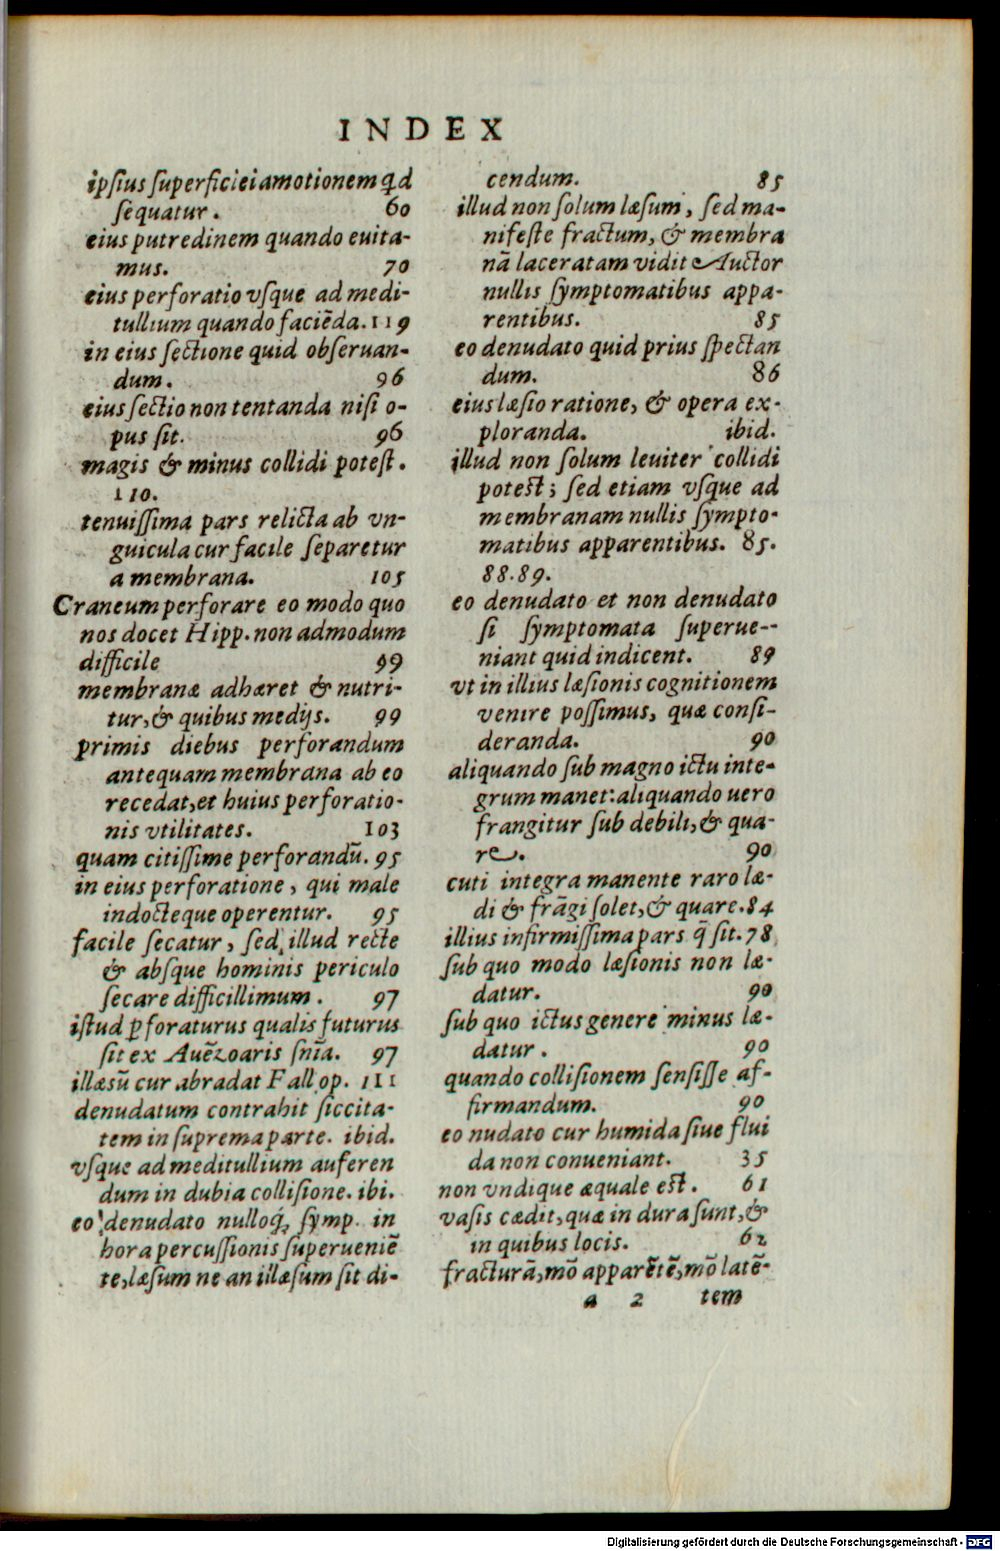 INDEX
ipſius ſuperficiei amotionem qd
ſequatur. 60
eius putredinem quando euita-
mus. 70
eius perforatio vſque ad medi-
tullium quando faciẽda. 119
in eius ſectione quid obſeruan-
dum. 96
eius ſectio non tentanda niſi o-
pus ſit. 96
magis & minus collidi poteſt.
110.
tenuiſſima pars relicta ab vn-
guicula cur facile ſeparetur
a membrana. 105
Craneum perforare eo modo quo
nos docet Hipp. non admodum
difficile 99
membranæ adhæret & nutri-
tur, & quibus medijs. 99
primis diebus perforandum
antequam membrana ab eo
recedat, et huius perforatio-
nis vtilitates. 103
quam citiſſime perforandũ. 95
in eius perforatione, qui male
indocteque operentur. 95
facile ſecatur, ſed illud recte
& abſque hominis periculo
ſecare difficillimum. 97
iſtud ꝑforaturus qualis futurus
ſit ex Auẽzoaris ſnĩa. 97
illæsũ cur abradat Fallop. 111
denudatum contrahit ſiccita-
tem in ſuprema parte. ibid.
vſque ad meditullium auferen
dum in dubia colliſione. ibi.
eo denudato nulloq́; ſymp. in
hora percuſſionis ſuperueniẽ
te, læſum ne an illæſum ſit di-
cendum. 85
illud non ſolum læſum, ſed ma-
nifeſte fractum, & membra
nã laceratam vidit Auctor
nullis ſymptomatibus appa-
rentibus. 85
eo denudato quid prius ſpectan
dum. 86
eius læſio ratione, & opera ex-
ploranda. ibid.
illud non ſolum leuiter collidi
poteſt; ſed etiam vſque ad
membranam nullis ſympto-
matibus apparentibus. 85.
88.89.
eo denudato et non denudato
ſi ſymptomata ſuperue--
niant quid indicent. 89
vt in illius læſionis cognitionem
venire poſſimus, quæ conſi-
deranda. 90
aliquando ſub magno ictu inte-
grum manet: aliquando uero
frangitur ſub debili, & qua-
re. 90
cuti integra manente raro læ-
di & frãgi ſolet, & quare. 84
illius infirmiſſima pars q̃ ſit. 78
ſub quo modo læſionis non læ-
datur. 90
ſub quo ictus genere minus læ-
datur. 90
quando colliſionem ſenſiſſe af-
firmandum. 90
eo nudato cur humida ſiue flui
da non conueniant. 35
non vndique æquale eſt. 61
vaſis cædit, quæ in dura ſunt, &
in quibus locis. 62
fracturã, mõ apparẽtẽ, mõ latẽ-
a 2 tem
Digitalisierung gefördert durch die Deutsche Forschungsgemeinschaft - DFG